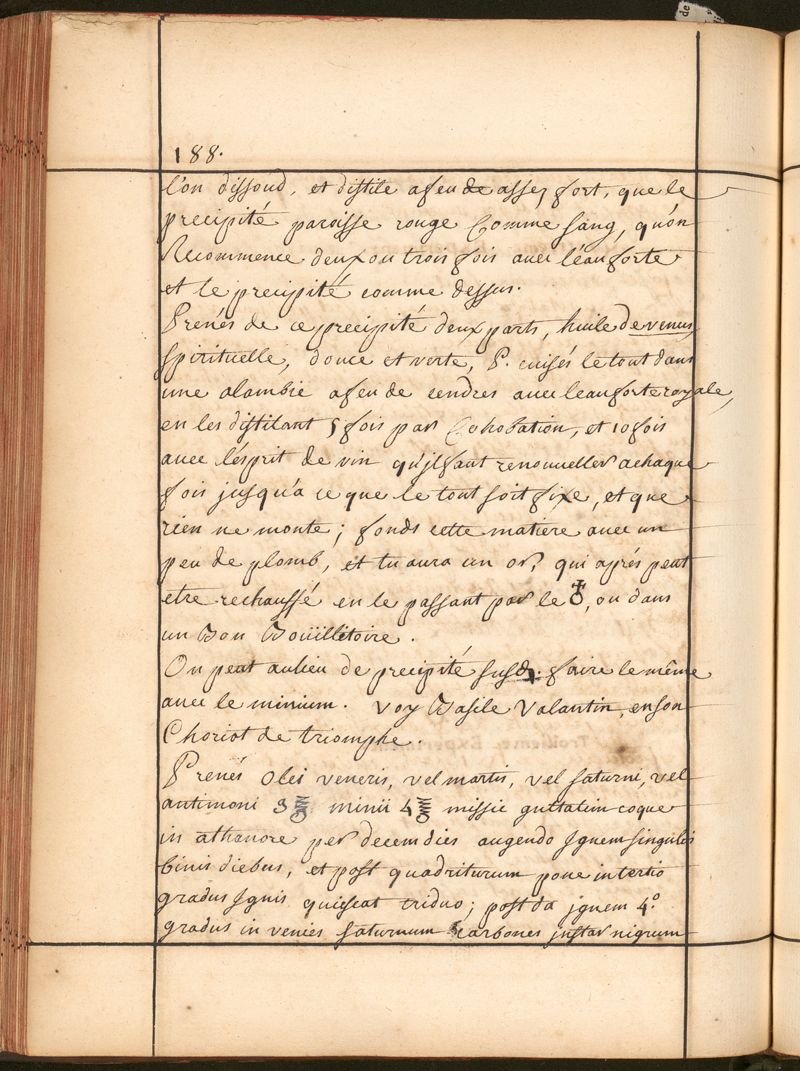 188.
l'on dissoud, et distile a feu de assez fort, que le
precipité paroisse rouge Comme sang, qu'on
Recommence deux ou trois fois avec l'eau forte
et le precipité comme dessus.
Prenés de ce precipité deux parts, huile de venus
spirituelle, douce et verte, P. cuisés le tout dans
une alambic a feu de cendres avec l'eau forte royale,
en les distilant 5 fois par Cohobation, et 10 fois
avec l'esprit de vin qu'jl faut renouveller a chaque
fois jusqu'a ce que le tout soit fixe, et que
rien ne monte; fonds cette matiere avec un
peu de plomb, et tu aura un or, qui aprés peut
etre rechauffé en le passant par le ♁, ou dans
un Bon Boüillitoire.
On peut aulieu de precipité susd. faire le même
avec le minium. Voy Basile Valantin, en son
Choriot de triomphe.
Prenés Olei veneris, vel martis, vel saturni, vel
antimoni 3 minii 4 missie guttatim coque
in athanore per decem dies augendo Jgnem singulis
binis diebus, et post quadriturum pone in tertio
gradus Jgnis quiescat triduo; post da jgnem 4.º
gradus in venies saturnum carbones jnstar nigrum